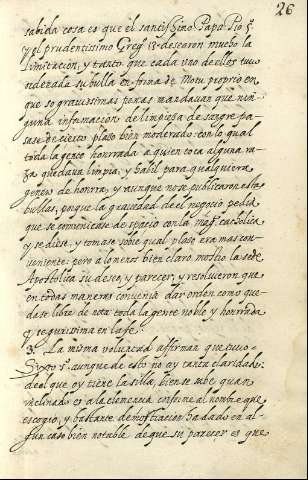 26
sabida cosa es que el santissimo Papa Pio 5.
y el prudentissimo Greg. 13. dessearon mucho la
limitacion, y tanto que cada uno dellos tuvo
ordenada su bulla en forma de Motu proprio en
que so gravissimas penas mandavan que nin-
guna informacion de limpieza de sangre pa-
sase de cierto plaso bien moderado: con lo qual
toda la gente honrrada a quien toca alguna ra-
za quedava limpia, y habil para qualquiera
genero de honrra, y aunque no se publicaron estas
bullas, porque la gravedad del negocio pedia
que se comunicase de spacio con la mag.d catholica
y se diese, y tomase sobre qual plaso era mas con-
veniente: pero alomenos bien claro mostro la sede
Apostolica su deseo, y parecer, y resolvieron que
en todas maneras convenia dar orden como que-
dase libre de nota toda la gente noble y honrrada
y seguissima en la fe.
3. La misma voluntad affirman que tuvo
Sixto 5. aunque de esto no ay tanta claridad:
de el que oy tiene la silla, bien se sabe quan
inclinado es a la clemencia conforme al nombre que
escogio, y bastante demostracion ha dado en al-
gun caso bien notable de que su parecer es que